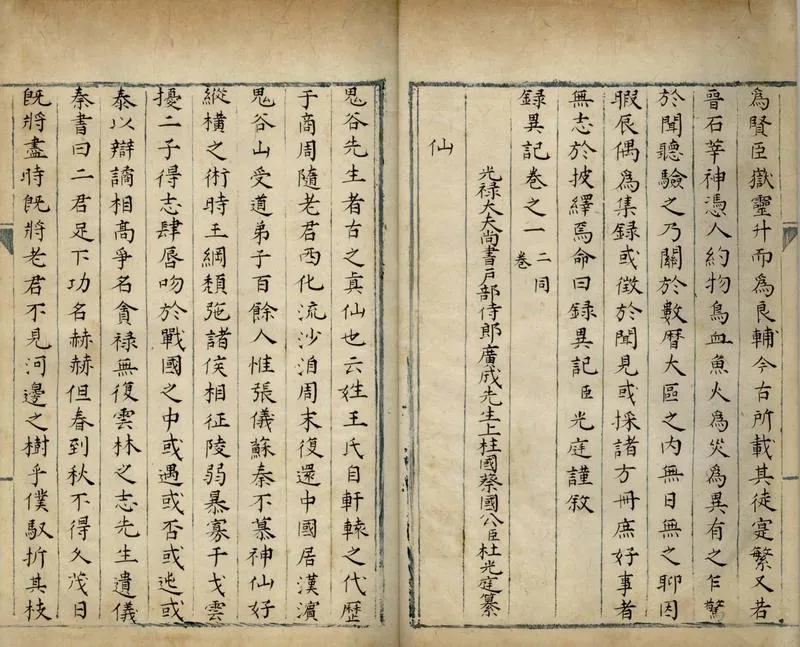 為賢臣嶽靈升而為良輔今古所載其徒寔繁又若
晉石莘神憑人約物鳥血魚火為災為異有之乍驚
於聞聽驗之乃關於數曆大區之内無日無之聊因
暇辰偶為集録或徴於聞見或採諸方冊庶好事者
無志於披繹焉命曰録異記臣光庭謹敘
録異記卷之一二同卷
光禄大夫尚書戸部侍郎廣成先生上柱國蔡國公臣杜光庭纂
仙
鬼谷先生者古之真仙也云姓王氏自軒轅之代歷
于商周隨老君西化流沙洎周末復還中國居漢濵
鬼谷山受道弟子百餘人惟張儀蘇秦不慕神仙好
縱横之術時王綱頽弛諸侯相征陵弱暴寡干戈雲
擾二子得志肆唇吻於戰國之中或遇或否或迍或
泰以辯譎相高爭名貪禄無復雲林之志先生遺儀
秦書曰二君足下功名赫赫但春到秋不得久茂日
既將盡時既將老君不見河邊之樹乎僕馭折其枝